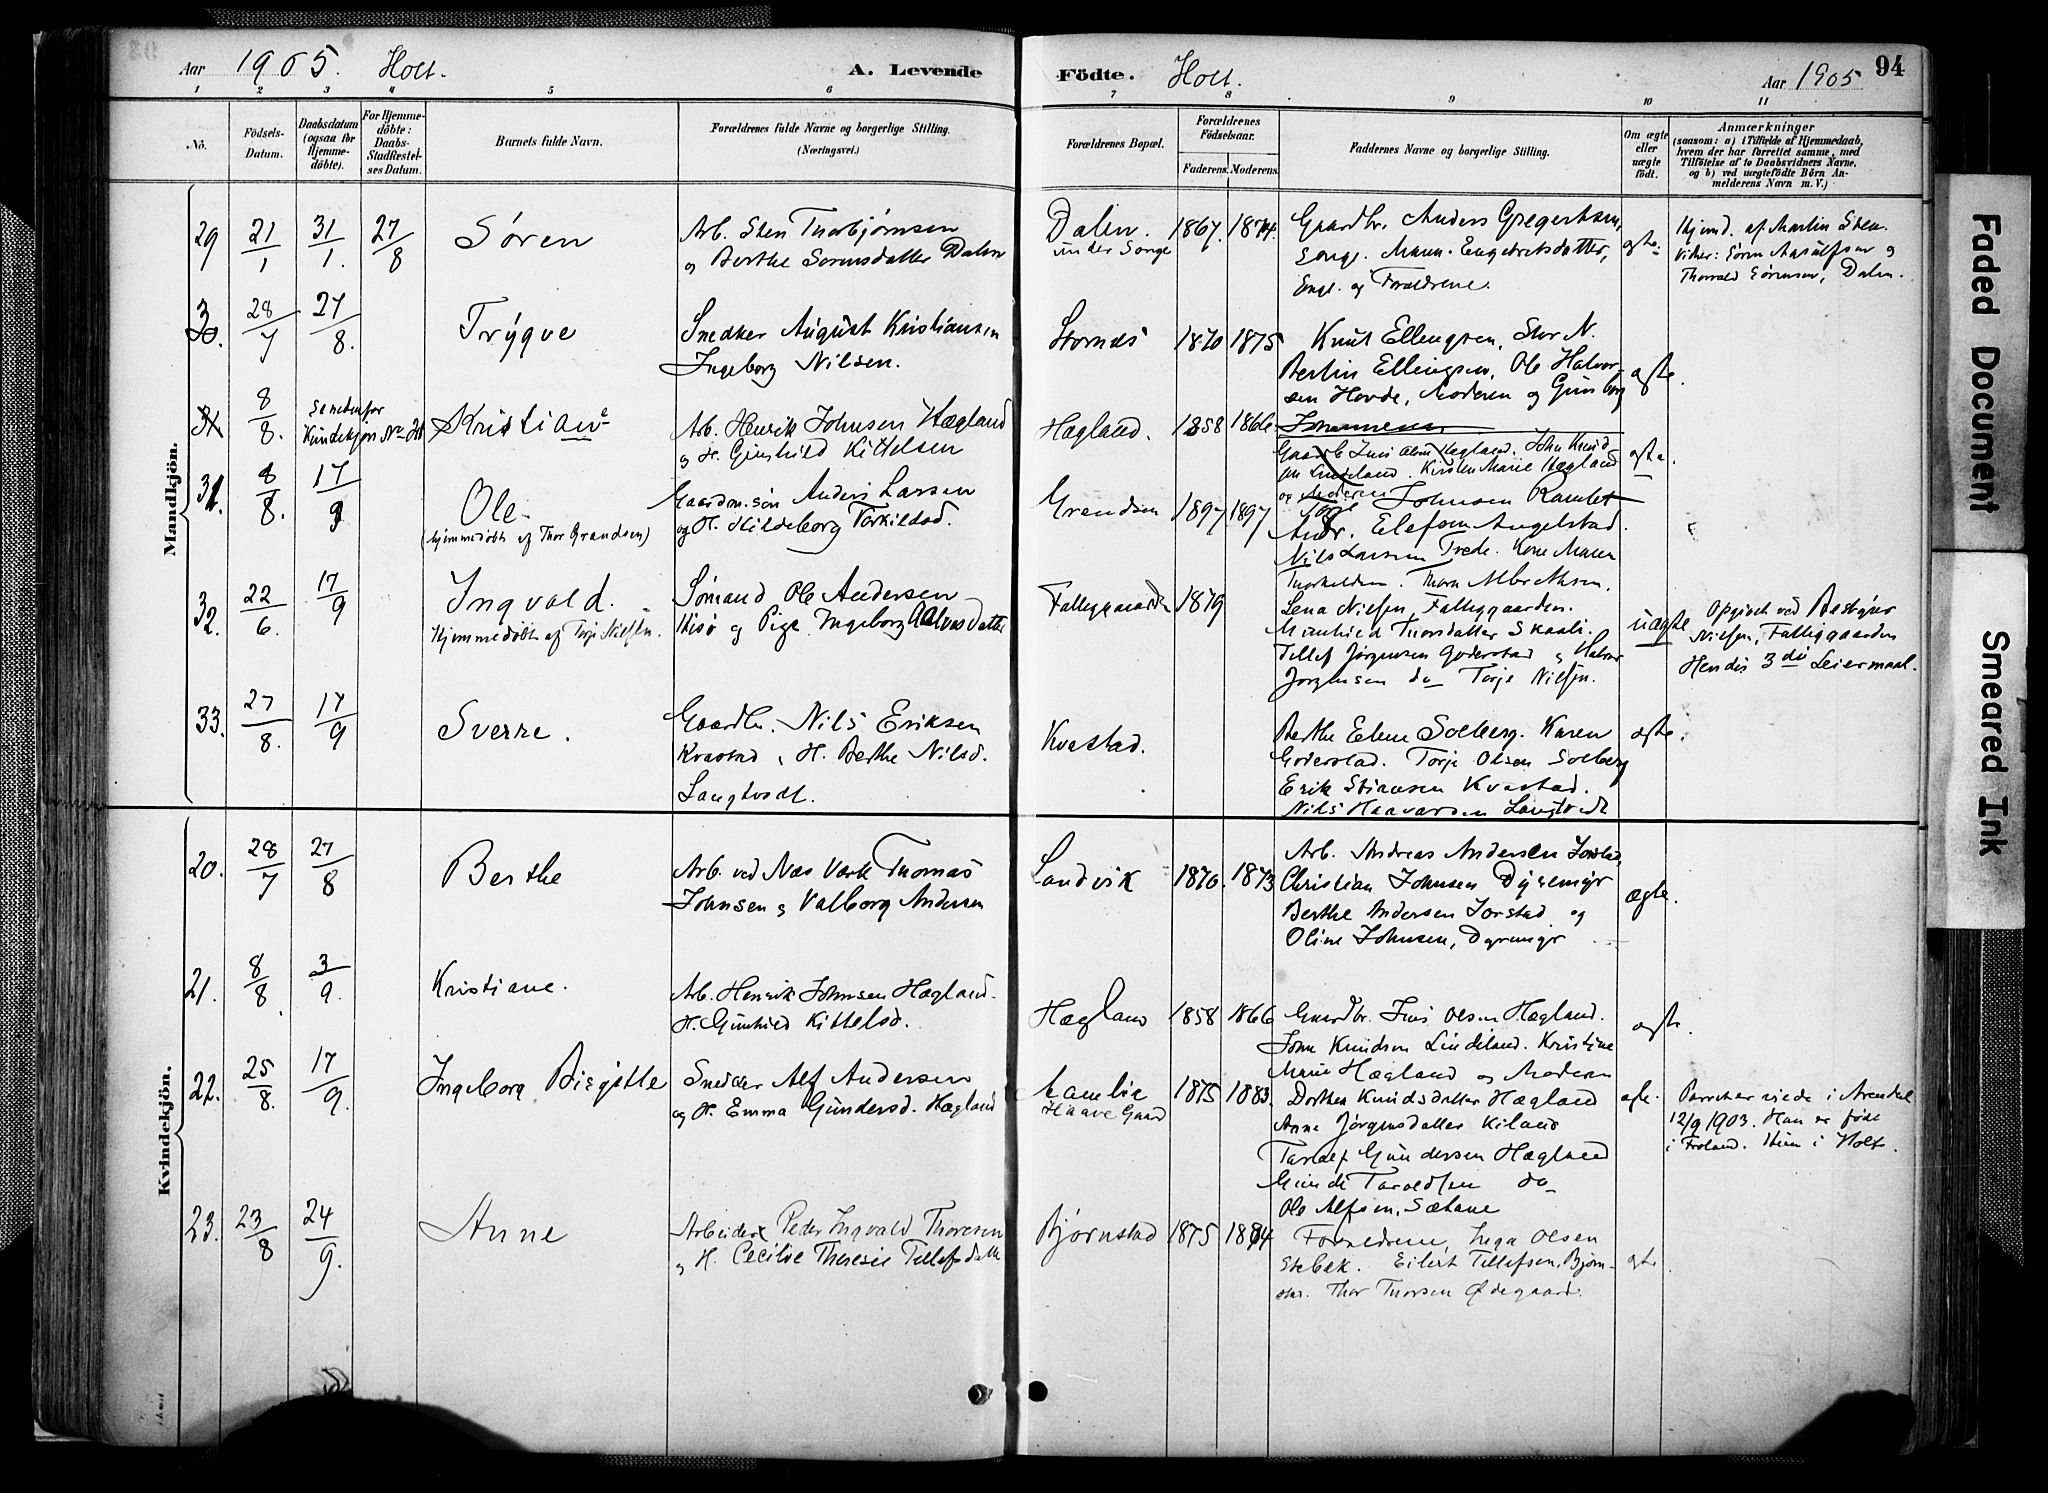 Aar 1905. Holt. A. Levende
Födte. Holt. Aar 1905 94
1 2 3 4 5 6 7 8 9 10 11
No.
Födsels-Datum.
Daabsdatum (ogsaa for Hjemmedöbte).
For Hjemmedöbte: Daabs-Stadfæstelses Datum.
Barnets fulde Navn.
Forældrenes fulde Navne og borgerlige Stilling.
(Næringsvei.)
Forældrenes Bopæl.
Forældrenes Födselsaar.
Faderens. Moderens.
Faddernes Navne og borgerlige Stilling.
Om ægte eller uægte födt.
Anmærkninger
(saasom: a) i Tilfælde af Hjemmedaab, hvem der har forrettet samme, med Tilföielse af to Daabsvidners Navne, og b) ved uægtefödte Börn Anmelderens Navn m. V.)
Mandkjön.
29 21/1 31/1. 27/8 Søren
Arb. Sten Thorbjørnsen
og Berthe Sørensdatter Dalen
Dalen.
under Songe
1867. 1874.
Gaardbr. Anders Gregertsen,
Songe. Maren Engebretsdatter,
Songe. og Forældrene.
ægte.
Hjemd. af Martin Sten.
Vidner: Søren Aasulfsen og
Thorvald Sørensen, Dalen.
30 28/7 27/8. Trygve
Snedker August Kristiansen
Ingeborg Nilsen.
Stornes 1870 1875
Knut Ellingsen, Stor N.
Berlin Ellingsen, Ole Halvor-
sen Hovde, Moderen og Gunborg
ægte.
31 8/8. Se nedenfor
Kvindekjøn No 21
Kristiane
Arb. Henrik Johnsen Hægland
og H. Gunhild Kittelsen
Hægland. 1858 1866
Johannesen
Gaardb. Jens Olsen Hægland. John Knud-
sen Lindeland. Kirsten Marie Hægland
og Moderen
ægte
31. 8/8. 17/9 Ole
(hjemmedøbt af Thor Grendsen)
Gaardm. søn Anders Larsen
og H. Hildeborg Torkildsd.
Grendsen 1897 1897
Johnsen Ramlet
Andr. Elefsen Angelstad.
Nils Larsen Trede. Kone Maren
Thorkildsen. Thora Albretsen.
32. 22/6. 17/9 Ingvald.
Hjemmedøbt af Torje Nielsen.
Sømand Ole Andersen
Hisø og Pige Ingeborg Olvesdatter
Falleggaarden 1879
Lena Nielsen, Falleggaarden.
Gunhild Thorsdatter Skaali.
Tellef Jørgensen Goderstad og Halvor
Jørgensen do Torje Nielsen.
uægte
Opgivet ved Bestyrer
Nielsen, Falleggaarden
Hendes 3di Leiermaal.
33. 27/8. 17/9 Sverre.
Gaardbr. Nils Eriksen
Kvastad, H. Berthe Nilsd.
Langtvedt.
Kvastad.
Berthe Elene Solberg. Karen
Goderstad. Torje Olsen Solberg
Erik Stiansen Kvastad.
Nils Haavorsen Langtvedt
ægte.
Kvindekjön.
20. 28/7 27/8 Berthe
Arb. ved Næs Værk Thomas
Johnsen og Valborg Andersen
Landvik 1870. 1873
Arb. Andreas Andersen Jorstad,
Christian Johnsen Dyremyr
Berthe Andersen Jorstad og
Oline Johnsen, Dyremyr
ægte.
21. 8/8 3/9. Kristiane.
Arb. Henrik Johnsen Hægland.
H. Gunhild Kittelsd.
Hægland 1858 1866
Gaardbr. Jens Olsen Hægland.
John Knudsen Lindeland. Kristine
Marie Hægland og Moderen
ægte.
22. 25/8. 17/9. Ingeborg Birgitte
Snedker Alf Andersen
og H. Emma Gundersd. Hægland
1875 1883.
Dorthea Knudsdatter Hægland
Anne Jørgensdatter Kiland
Taralf Gundersen Hægland
Gunde Taraldsen do
Ole Alfsen, Sætane
ægte.
Parret er viede i Arendal
12/9 1903. Han er født
i Froland. Hun i Holt.
23. 23/8 24/9. Anne
Arbeider Peder Ingvald Thoresen
og H. Cecilie Theresie Tellefsdatter
Bjørnstad 1875 1884
Forældrene, Inga Olsen
Stebæk. Eilert Tellefsen, Bjørn-
stad. Thor Thorsen Ødegaard.
ægte.
Faded Document
Smeared Ink